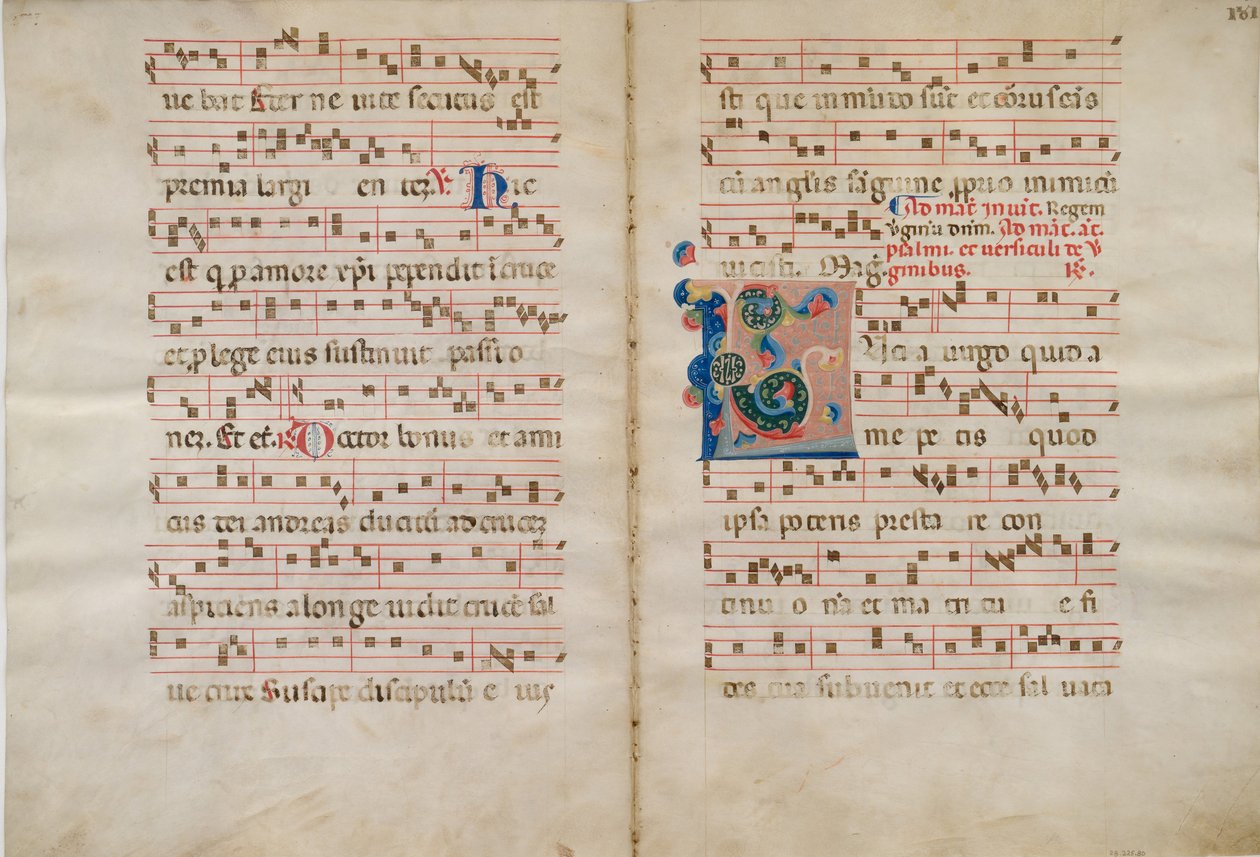 ue bat Eter ne uite secutus est
premia largi en tez. V. Hic
est q p amore xpi pependit i cruce
et p lege eius sustinuit passi o
nez. Et et. R Doctor bonus et ami
cus dei andreas ducitur ad crucez
aspiciens a longe uidit crucē sal
ue crux Suscipe discipulū e ius
181
sti que in mūdo sūt et coruscās
cū anglis sāguine pprio inimicū
Ad mat. Inuit. Regem
uginū dnm. Ad mat. at.
psalmi. et uersiculi de V
uicisti. Mag. ginibus. R.
Lucia uirgo quid a
me pe tis quod
ipsa poteris presta re con
tinu o nā et ma tri tu e fi
des tua subuenit et ecce sal uata
28.225.80